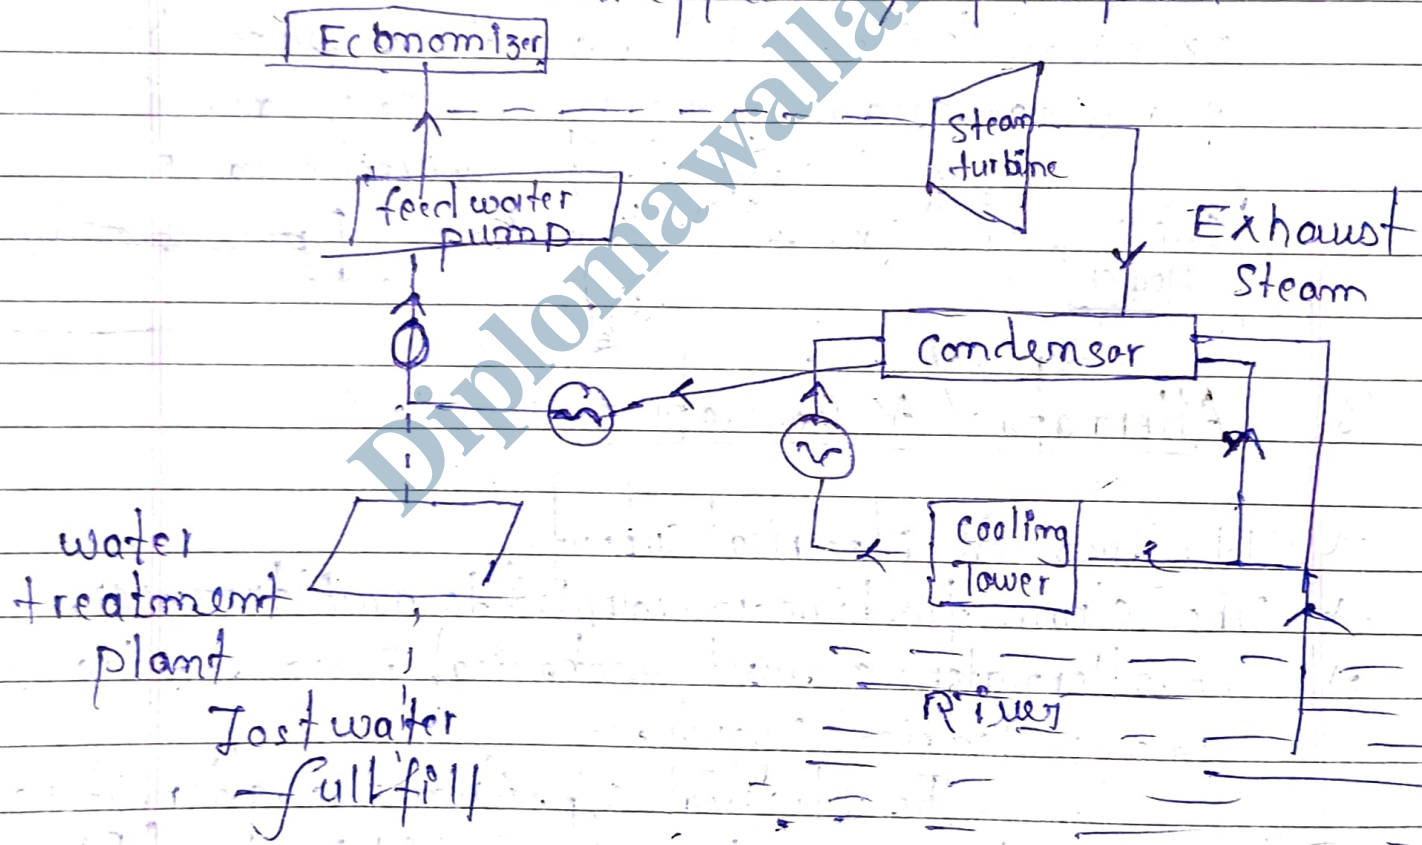 Economizer
Steam
turbine
feed water
pump
Exhaust
Steam
Condensor
Cooling
Tower
water
treatment
plant
River
Lost water
fullfill
Diplomawallah